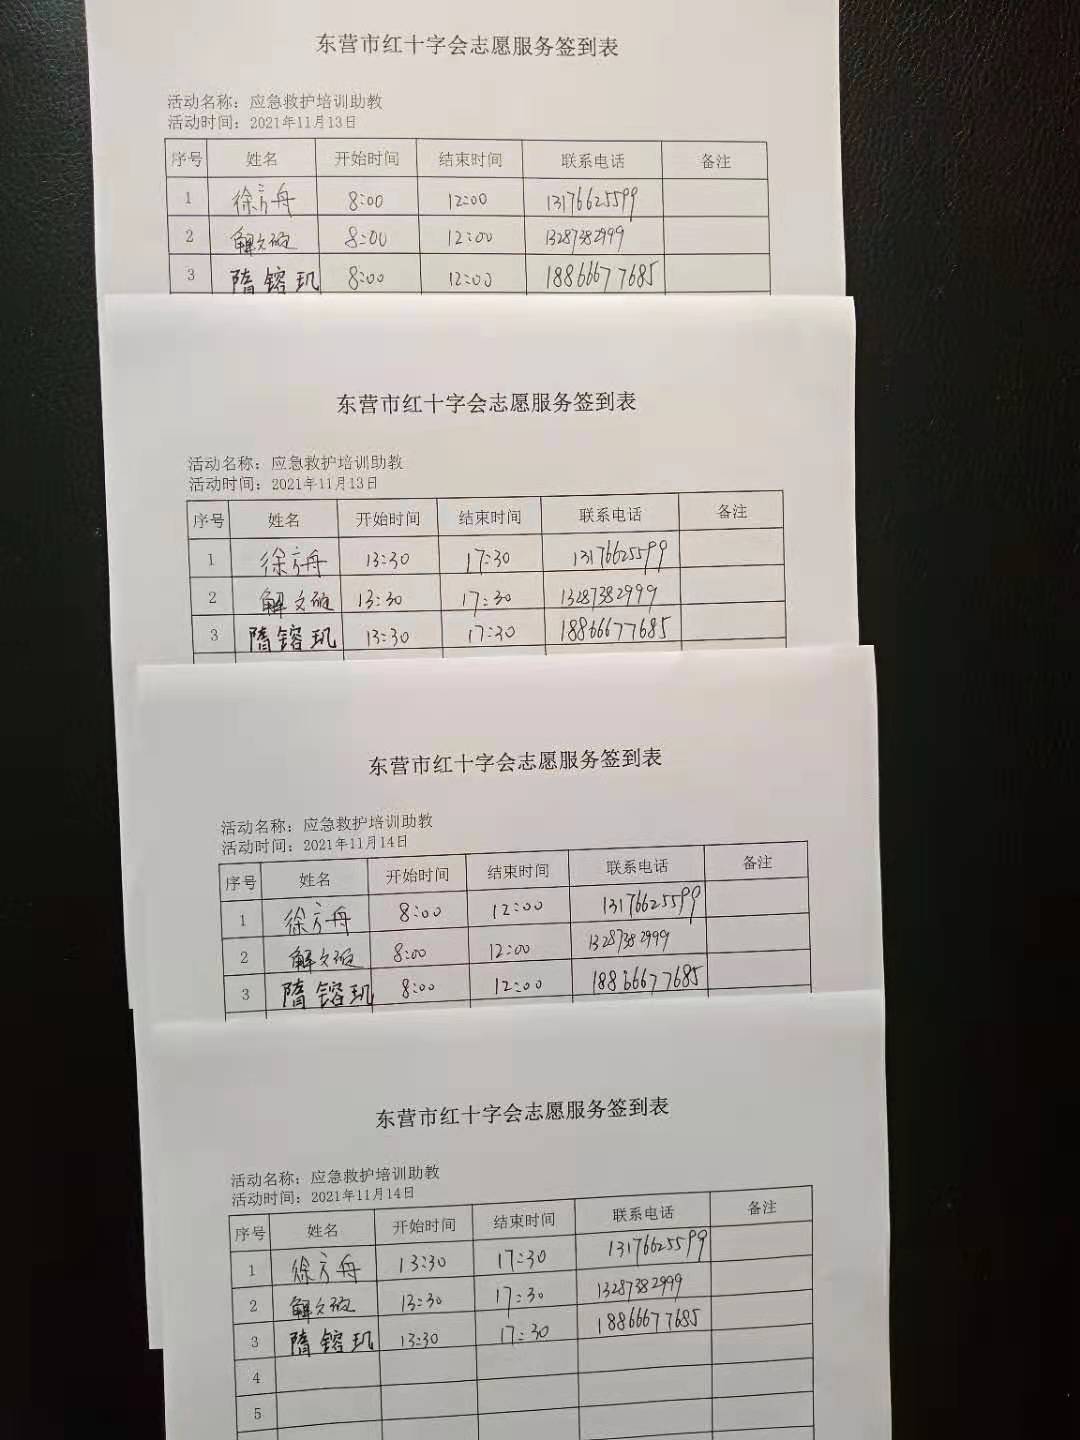 东营市红十字会志愿服务签到表
活动名称：应急救护培训助教
活动时间：2021年11月13日
序号 姓名 开始时间 结束时间 联系电话 备注
1 徐方舟 8:00 12:00 13176625599
2 解文砚 8:00 12:00 13287382999
3 隋镕玑 8:00 12:00 18866677685
东营市红十字会志愿服务签到表
活动名称：应急救护培训助教
活动时间：2021年11月13日
序号 姓名 开始时间 结束时间 联系电话 备注
1 徐方舟 13:30 17:30 13176625599
2 解文砚 13:30 17:30 13287382999
3 隋镕玑 13:30 17:30 18866677685
东营市红十字会志愿服务签到表
活动名称：应急救护培训助教
活动时间：2021年11月14日
序号 姓名 开始时间 结束时间 联系电话 备注
1 徐方舟 8:00 12:00 13176625599
2 解文砚 8:00 12:00 13287382999
3 隋镕玑 8:00 12:00 18866677685
东营市红十字会志愿服务签到表
活动名称：应急救护培训助教
活动时间：2021年11月14日
序号 姓名 开始时间 结束时间 联系电话 备注
1 徐方舟 13:30 17:30 13176625599
2 解文砚 13:30 17:30 13287382999
3 隋镕玑 13:30 17:30 18866677685
4
5